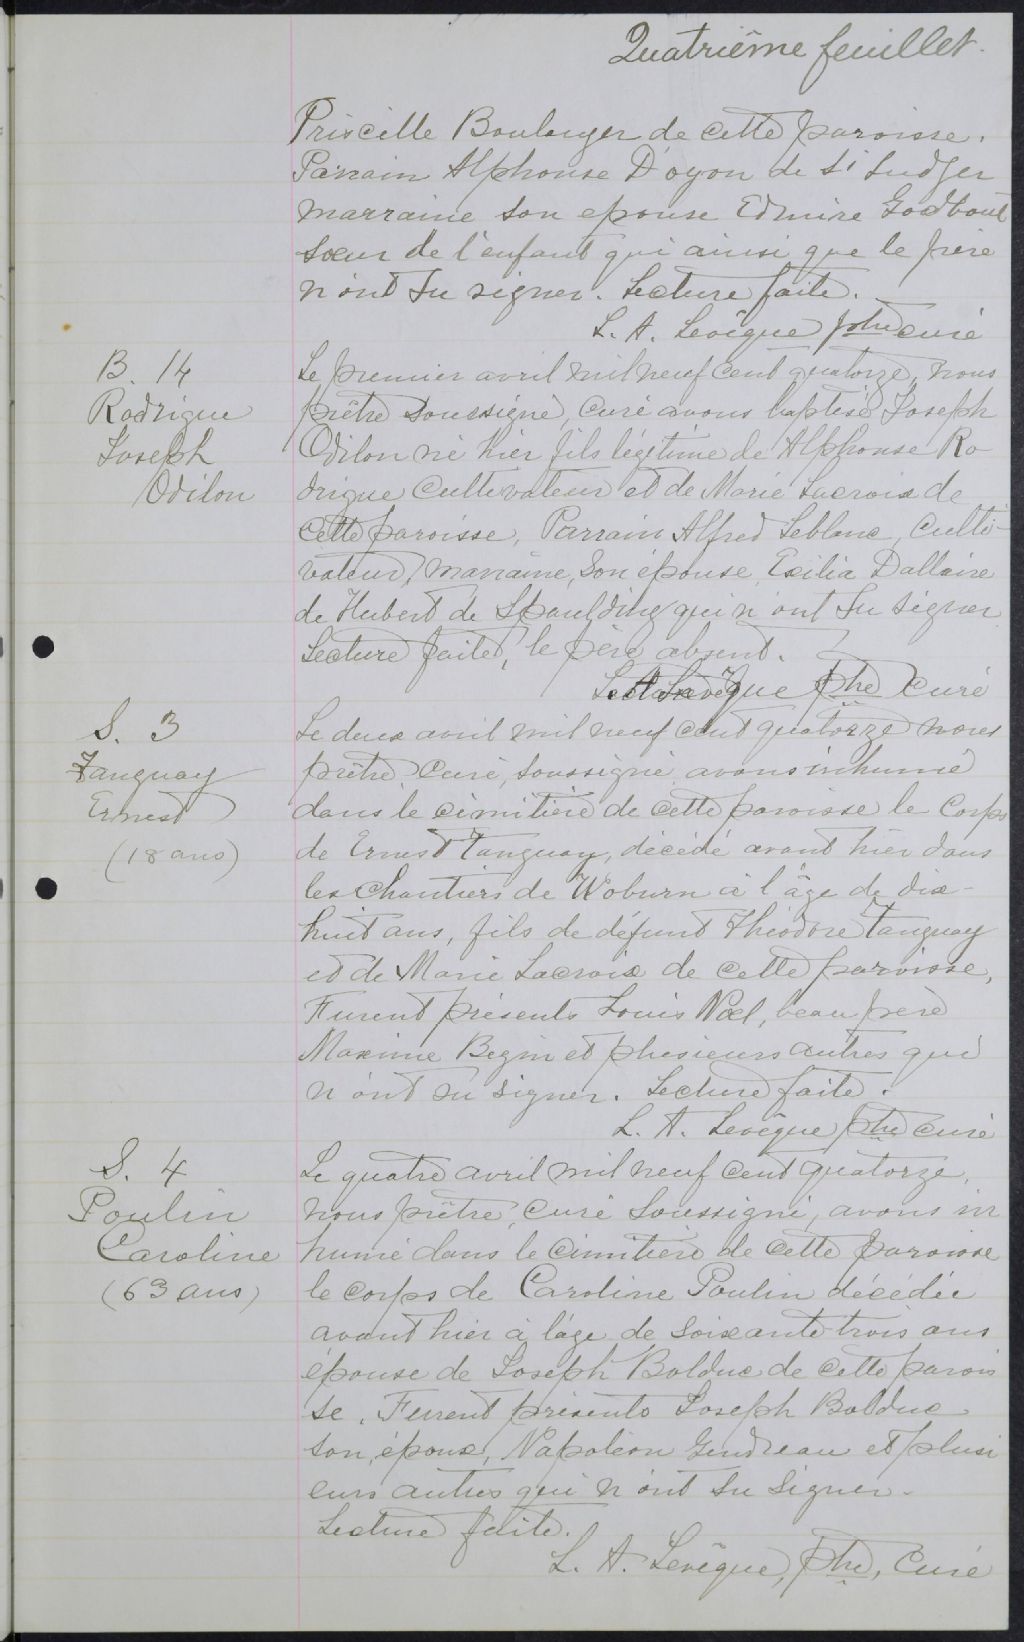 Quatrième feuillet.
Priscille Boulanger de cette paroisse.
Parrain Alphonse D'oyon de St Ludger
marraine son epouse Edmire Godbout
soeur de l'enfant qui ainsi que le père
n'ont su signer. Lecture faite.
L. A. Levêque ptre curé
B. 14
Rodrigue
Joseph
Odilon
Le premier avril mil neuf cent quatorze, nous
prêtre soussigné, curé avons baptisé Joseph
Odilon né hier fils légitime de Alphonse Ro
drigue Cultivateur et de Marie Lacroix de
cette paroisse, Parrain Alfred Leblanc, Culti-
vateur, marraine, Son épouse, Exilia Dallaire
de Hubert de Spaulding qui n'ont su signer
Lecture faite, le père absent.
L. A. Levêque ptre Curé
S. 3
Tanguay
Ernest
(18 ans)
Le deux avril mil neuf cent quatorze nous
prêtre Curé, soussigné avons inhumé
dans le cimitière de cette paroisse le Corps
de Ernest Tanguay, décédé avant hier dans
les Chantiers de Woburn à l'âge de dix-
huit ans, fils de défunt Théodore Tanguay
et de Marie Lacroix de cette paroisse,
Furent présents Louis Noel, beau père
Maxime Begin et plusieurs autres qui
n'ont su signer. Lecture faite.
L. A. Levêque ptre curé
S. 4
Poulin
Caroline
(63 ans)
Le quatre avril mil neuf cent quatorze,
nous prêtre, Curé Soussigné, avons in
humé dans le Cimitière de cette paroisse
le corps de Caroline Poulin décédée
avant hier à l'âge de soixante-trois ans
épouse de Joseph Bolduc de cette parois
se, Furent présents Joseph Bolduc
son époux, Napoléon Gendreau et plusi
eurs autres qui n'ont su signer.
Lecture faite.
L. A. Levêque, ptre, Curé